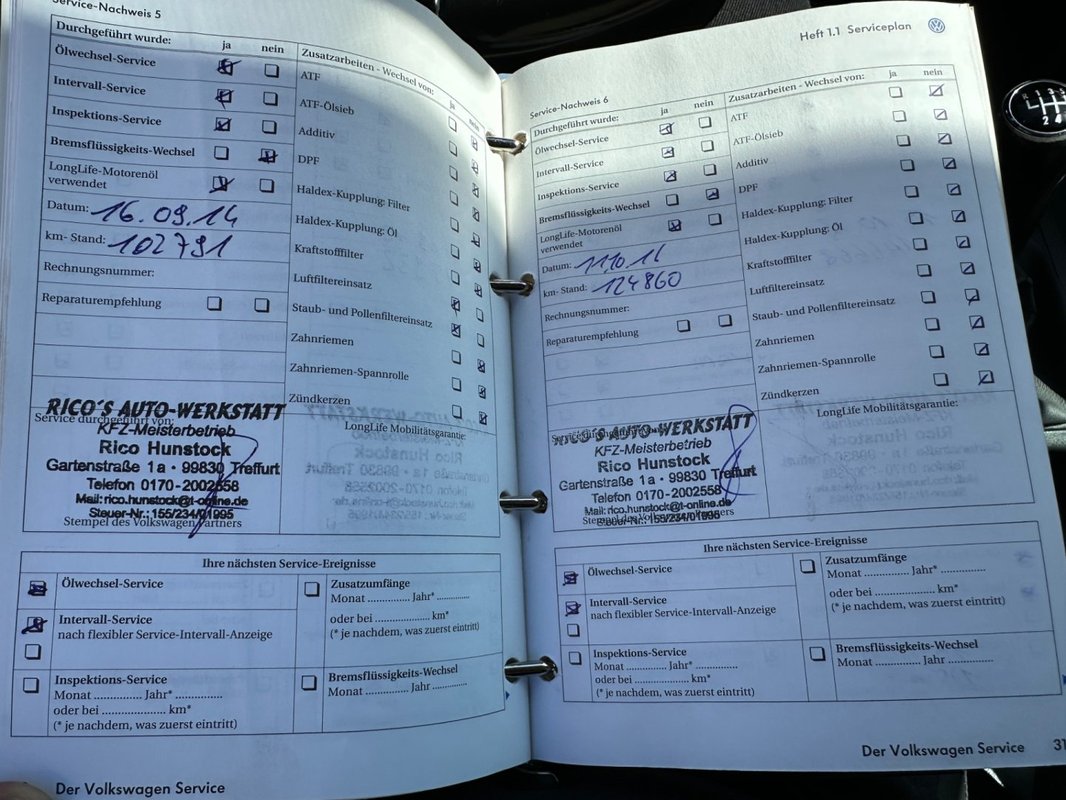 Service-Nachweis 5
Durchgeführt wurde: ja nein
Ölwechsel-Service
Intervall-Service
Inspektions-Service
Bremsflüssigkeits-Wechsel
LongLife-Motorenöl
verwendet
Datum: 16.09.14
km- Stand: 102791
Rechnungsnummer:
Reparaturempfehlung
Zusatzarbeiten - Wechsel von: ja
ATF
ATF-Ölsieb
Additiv
DPF
Haldex-Kupplung: Filter
Haldex-Kupplung: Öl
Kraftstofffilter
Luftfiltereinsatz
Staub- und Pollenfiltereinsatz
Zahnriemen
Zahnriemen-Spannrolle
Zündkerzen
Service durchgeführt von:
RICO'S AUTO-WERKSTATT
KFZ-Meisterbetrieb
Rico Hunstock
Gartenstraße 1a • 99830 Treffurt
Telefon 0170-2002558
Mail: rico.hunstock@t-online.de
Steuer-Nr.: 155/234/01995
Stempel des Volkswagen Partners
LongLife Mobilitätsgarantie:
Ihre nächsten Service-Ereignisse
Ölwechsel-Service
Intervall-Service
nach flexibler Service-Intervall-Anzeige
Inspektions-Service
Monat .............. Jahr* ..............
oder bei ...................... km*
(* je nachdem, was zuerst eintritt)
Zusatzumfänge
Monat .............. Jahr* ..............
oder bei ...................... km*
(* je nachdem, was zuerst eintritt)
Bremsflüssigkeits-Wechsel
Monat .............. Jahr ..............
Der Volkswagen Service
Heft 1.1 Serviceplan
Service-Nachweis 6
Durchgeführt wurde: ja nein
Ölwechsel-Service
Intervall-Service
Inspektions-Service
Bremsflüssigkeits-Wechsel
LongLife-Motorenöl
verwendet
Datum: 11.10.16
km- Stand: 124860
Rechnungsnummer:
Reparaturempfehlung
Zusatzarbeiten - Wechsel von: ja nein
ATF
ATF-Ölsieb
Additiv
DPF
Haldex-Kupplung: Filter
Haldex-Kupplung: Öl
Kraftstofffilter
Luftfiltereinsatz
Staub- und Pollenfiltereinsatz
Zahnriemen
Zahnriemen-Spannrolle
Zündkerzen
RICO'S AUTO-WERKSTATT
KFZ-Meisterbetrieb
Rico Hunstock
Gartenstraße 1a • 99830 Treffurt
Telefon 0170-2002558
Mail: rico.hunstock@t-online.de
Steuer-Nr.: 155/234/01995
Stempel des Volkswagen Partners
LongLife Mobilitätsgarantie:
Ihre nächsten Service-Ereignisse
Ölwechsel-Service
Intervall-Service
nach flexibler Service-Intervall-Anzeige
Inspektions-Service
Monat .............. Jahr* ..............
oder bei ...................... km*
(* je nachdem, was zuerst eintritt)
Zusatzumfänge
Monat .............. Jahr* ..............
oder bei ...................... km*
(* je nachdem, was zuerst eintritt)
Bremsflüssigkeits-Wechsel
Monat .............. Jahr ..............
Der Volkswagen Service 31
R 1 3 5
2 4